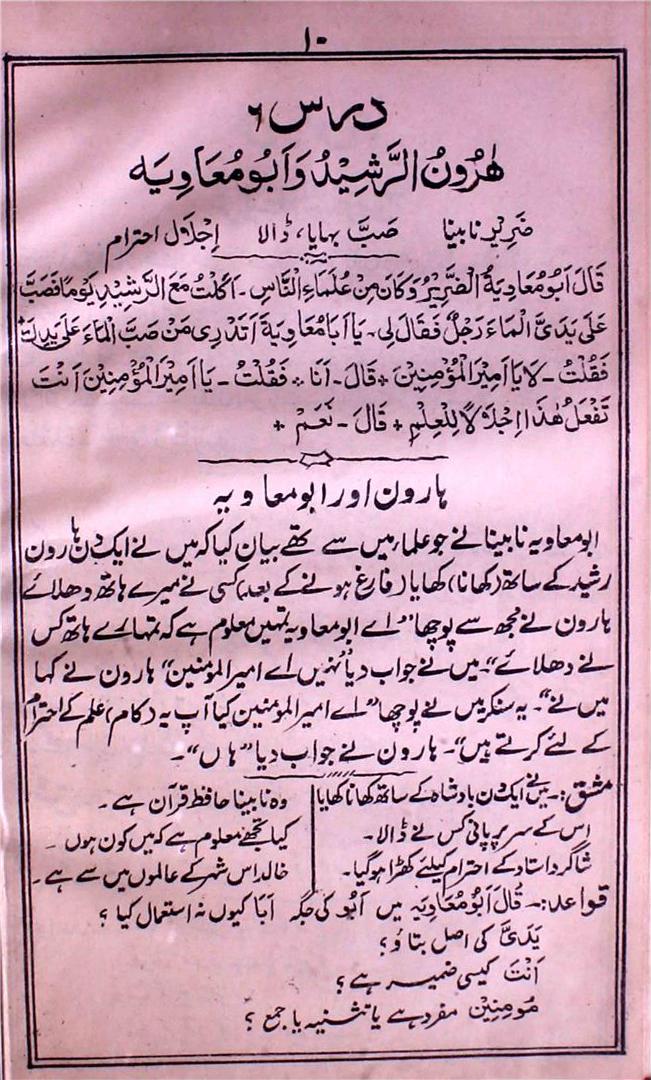 ۱۰
درس ۶
هٰرُوْنُ الرَّشِیْدُ وَ اَبُوْ مُعَاوِیَه
ضَرِیْر نابینا صَبَّ بہایا، ڈالا اِجْلَال احترام
قَالَ اَبُوْ مُعَادِیَةُ الضَّرِیْرُ وَکَانَ مِنْ عُلَمَاءِ النَّاسِ ۔ اَکَلْتُ مَعَ الرَّشِیْدِ یَوْمًا فَصَبَّ
عَلٰی یَدَیَّ الْمَاءَ رَجُلٌ فَقَالَ لِیْ ۔ یَا اَبَا مُعَاوِیَةَ اَتَدْرِیْ مَنْ صَبَّ الْمَاءَ عَلٰی یَدِیْكَ
فَقُلْتُ ۔ لَا یَا اَمِیْرَ الْمُؤْمِنِیْنَ + قَالَ ۔ اَنَا ۔ فَقُلْتُ ۔ یَا اَمِیْرَ الْمُؤْمِنِیْنَ اَنْتَ
تَفْعَلُ هٰذَا اِجْلَالًا لِلْعِلْمِ + قَالَ ۔ نَعَمْ +
ہارون اور ابو معاویہ
ابو معاویہ نابینا نے جو علماء میں سے تھے بیان کیا کہ میں نے ایک دن ہارون
رشید کے ساتھ (کھانا) کھایا (فارغ ہونے کے بعد) کسی نے میرے ہاتھ دھلائے
ہارون نے مجھ سے پوچھا "اے ابو معاویہ تمہیں معلوم ہے کہ تمہارے ہاتھ کس
نے دھلائے"۔ میں نے جواب دیا "نہیں اے امیر المؤمنین" ہارون نے کہا
میں نے"۔ یہ سنکر میں نے پوچھا "اے امیر المؤمنین کیا آپ یہ (کام) علم کے احترام
کے لئے کرتے ہیں"۔ ہارون نے جواب دیا "ہاں"۔
مشق:۔ میں نے ایک دن بادشاہ کے ساتھ کھانا کھایا
اس کے سر پر پانی کس نے ڈالا۔
شاگرد استاد کے احترام کیلئے کھڑا ہو گیا۔
وہ نابینا حافظ قرآن ہے۔
کیا تجھے معلوم ہے کہ میں کون ہوں۔
خالد اس شہر کے عالموں میں سے ہے۔
قواعد:۔ قَالَ اَبُوْ مُعَاوِیَہ میں اَبُو کی جگہ اَبَا کیوں نہ استعمال کیا؟
یَدَیَّ کی اصل بتاؤ؟
اَنْتَ کیسی ضمیر ہے؟
مُومِنِیْن مفرد ہے یا تثنیہ یا جمع؟